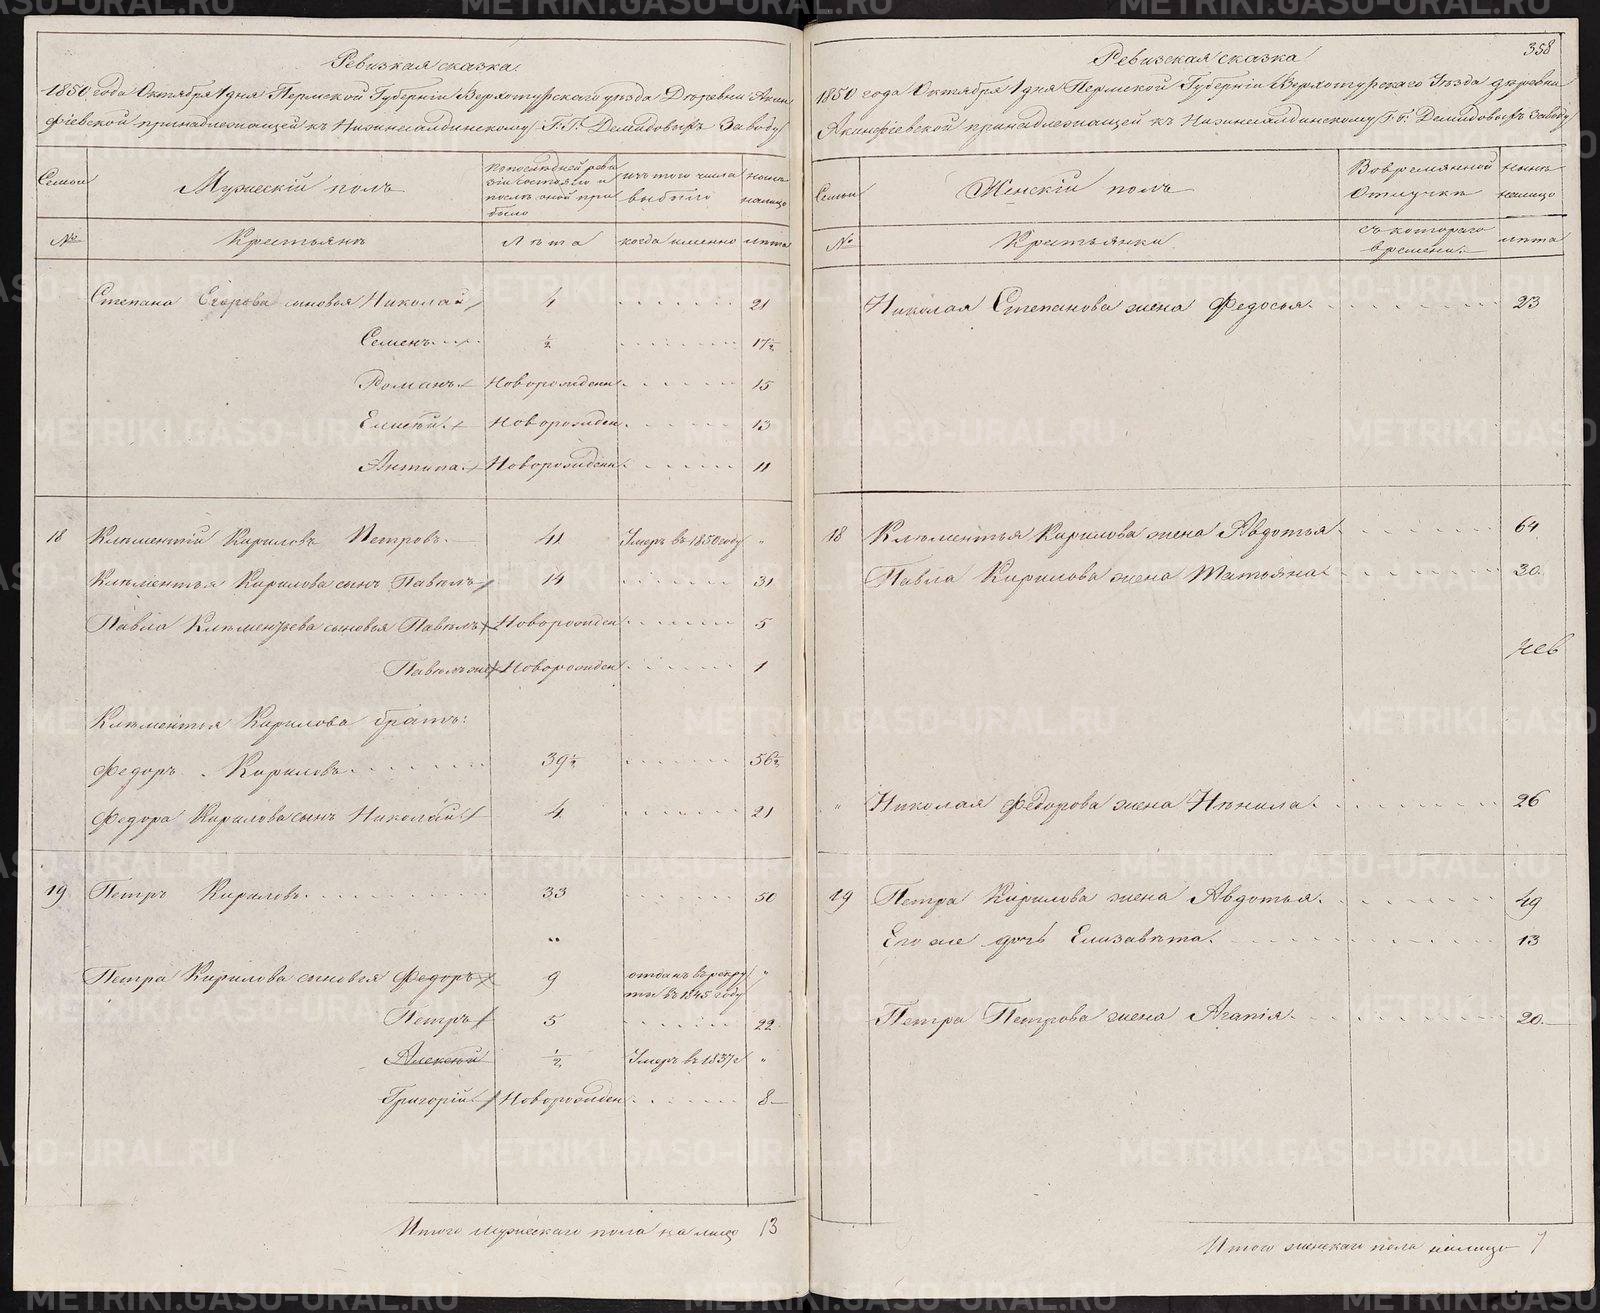 Ревизкая сказка
1850 года Октября 1 дня Пермской Губерніи Верхотурскаго уѣзда Деревни Акин
фіевской принадлежащей къ Нижнесалдинскому Г.Г. Демидовыхъ Заводу
Семьи
Мужескій полъ
По последней реви
зіи состояло и
после оной при
было
изъ того числа
выбыло
ныне
налицо
№
Крестьянъ
Лѣта
когда именно
лѣта
Степана Егорова сыновья Николай 4 21
Семенъ 1/2 17 1/2
Романъ Новорожден 15
Елисей Новорожден 13
Антипа Новорожден 11
18 Клементий Кириловъ Петровъ 41 Умеръ въ 1850 году "
Клементья Кирилова сынъ Павелъ 14 31
Павла Клементьева сыновья Павелъ Новорожден 5
Павелъ же Новорожден 1
Клементья Кирилова братъ:
Федоръ Кириловъ 39 1/2 56 1/2
Федора Кирилова сынъ Николай 4 21
19 Петръ Кириловъ 33 50
"
Петра Кирилова сыновья Федоръ 9 отданъ въ рекру
ты въ 1845 году "
Петръ 5 22
Алексей 1/2 Умеръ въ 1837 г "
Григорій Новорожден 8
Итого мужескаго пола на лицо 13
358
Ревизская сказка
1850 года Октября 1 дня Пермской Губерніи Верхотурскаго Уѣзда деревни
Акинфіевской принадлежащей къ Нижнесалдинскому Г.Г. Демидовыхъ Заводу
Семьи
Женскій полъ
Во временной
Отлучке
ныне
налицо
№
Крестьянки
съ котораго
времени
лѣта
Николая Степанова жена Федосья 23
18 Клементья Кирилова жена Авдотья 64
Павла Кирилова жена Татьяна 30
" Николая Федорова жена Ненила 26
19 Петра Кирилова жена Авдотья 49
Его же дочь Елизавета 13
Петра Петрова жена Агапія 20
Итого женскаго пола налицо 7
METRIKI.GASO-URAL.RU